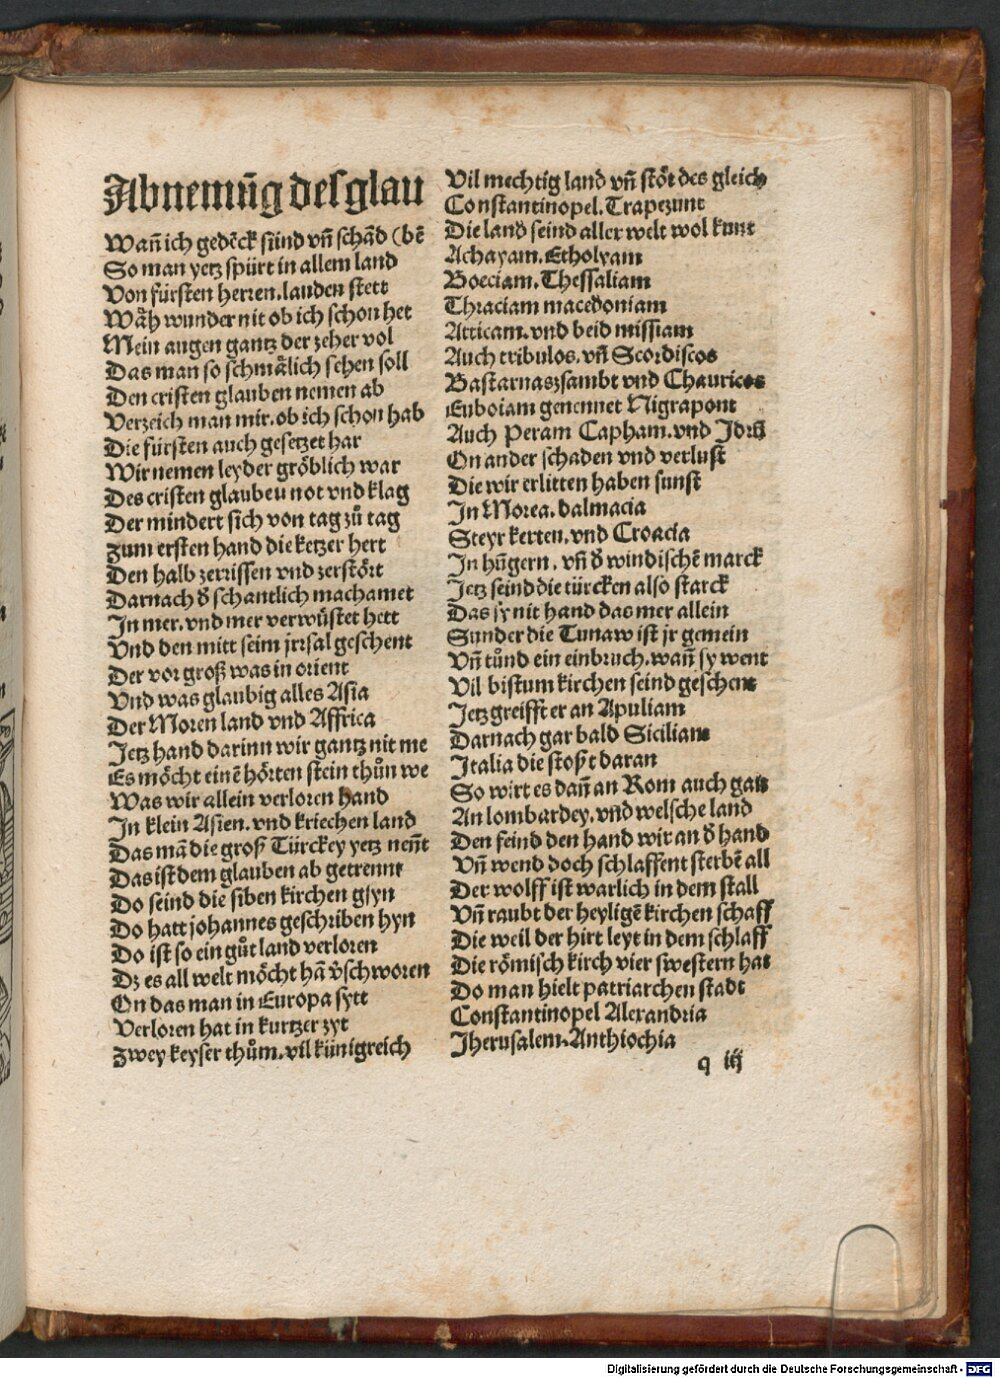 Abnemūg desglau
Wañ ich gedēck sünd vñ schād (bē
So man yetz spürt in allem land
Von fürsten herren. landen stett
Wāh wunder nit ob ich schon het
Mein augen gantz der zeher vol
Das man so schmälich sehen soll
Den cristen glauben nemen ab
Verzeich man mir. ob ich schon hab
Die fürsten auch gesetzet har
Wir nemen leyder gröblich war
Des cristen glaubeu not vnd klag
Der mindert sich von tag zů tag
Zum ersten hand die ketzer hert
Den halb zerrissen vnd zerstört
Darnach d̄ schantlich machamet
In mer. vnd mer verwüstet hett
Vnd den mitt seim jrrsal geschent
Der vor groß was in orient
Vnd was glaubig alles Asia
Der Moren land vnd Affrica
Jetz hand darinn wir gantz nit me
Es möcht einē hörten stein thůn we
Was wir allein verloren hand
In klein Asien. vnd kriechen land
Das mā die groß Türckey yetz neñt
Das ist dem glauben ab getrennt
Do seind die siben kirchen gsyn
Do hatt johannes geschriben hyn
Do ist so ein gůt land verloren
Dz es all welt möcht hā v̄schworen
On das man in Europa sytt
Verloren hat in kurtzer zyt
Zwey keyser thům. vil künigreich
Vil mechtig land vñ stöt des gleich
Constantinopel. Trapezunt
Die land seind aller welt wol kunt
Achayam. Etholyam
Boeciam. Thessaliam
Thraciam macedoniam
Atticam. vnd beid missiam
Auch tribulos. vñ Scordiscos
Bastarnas zsambt vnd Chauricos
Euboiam genennet Nigrapont
Auch Peram Capham. vnd
On ander schaden vnd verlust
Die wir erlitten haben sunst
In Morea. dalmacia
Steyr kerten. vnd Croacia
In hūgern. vñ d̄ windischē marck
Jetz seind die türcken also starck
Das sy nit hand das mer allein
Sunder die Tunaw ist jr gemein
Vñ tůnd ein einbruch. wañ sy went
Vil bistum kirchen seind geschent
Jetz greifft er an Apuliam
Darnach gar bald Siciliam
Italia die stoßt daran
So wirt es dañ an Rom auch gan
An lombardey. vnd welsche land
Den feind den hand wir an d̄ hand
Vñ wend doch schlaffent sterbē all
Der wolff ist warlich in dem stall
Vñ raubt der heyligē kirchen schaff
Die weil der hirt leyt in dem schlaff
Die römisch kirch vier swestern hat
Do man hielt patriarchen stadt
Constantinopel Alexandria
Jherusalem. Anthiochia
q iij
Digitalisierung gefördert durch die Deutsche Forschungsgemeinschaft - DFG